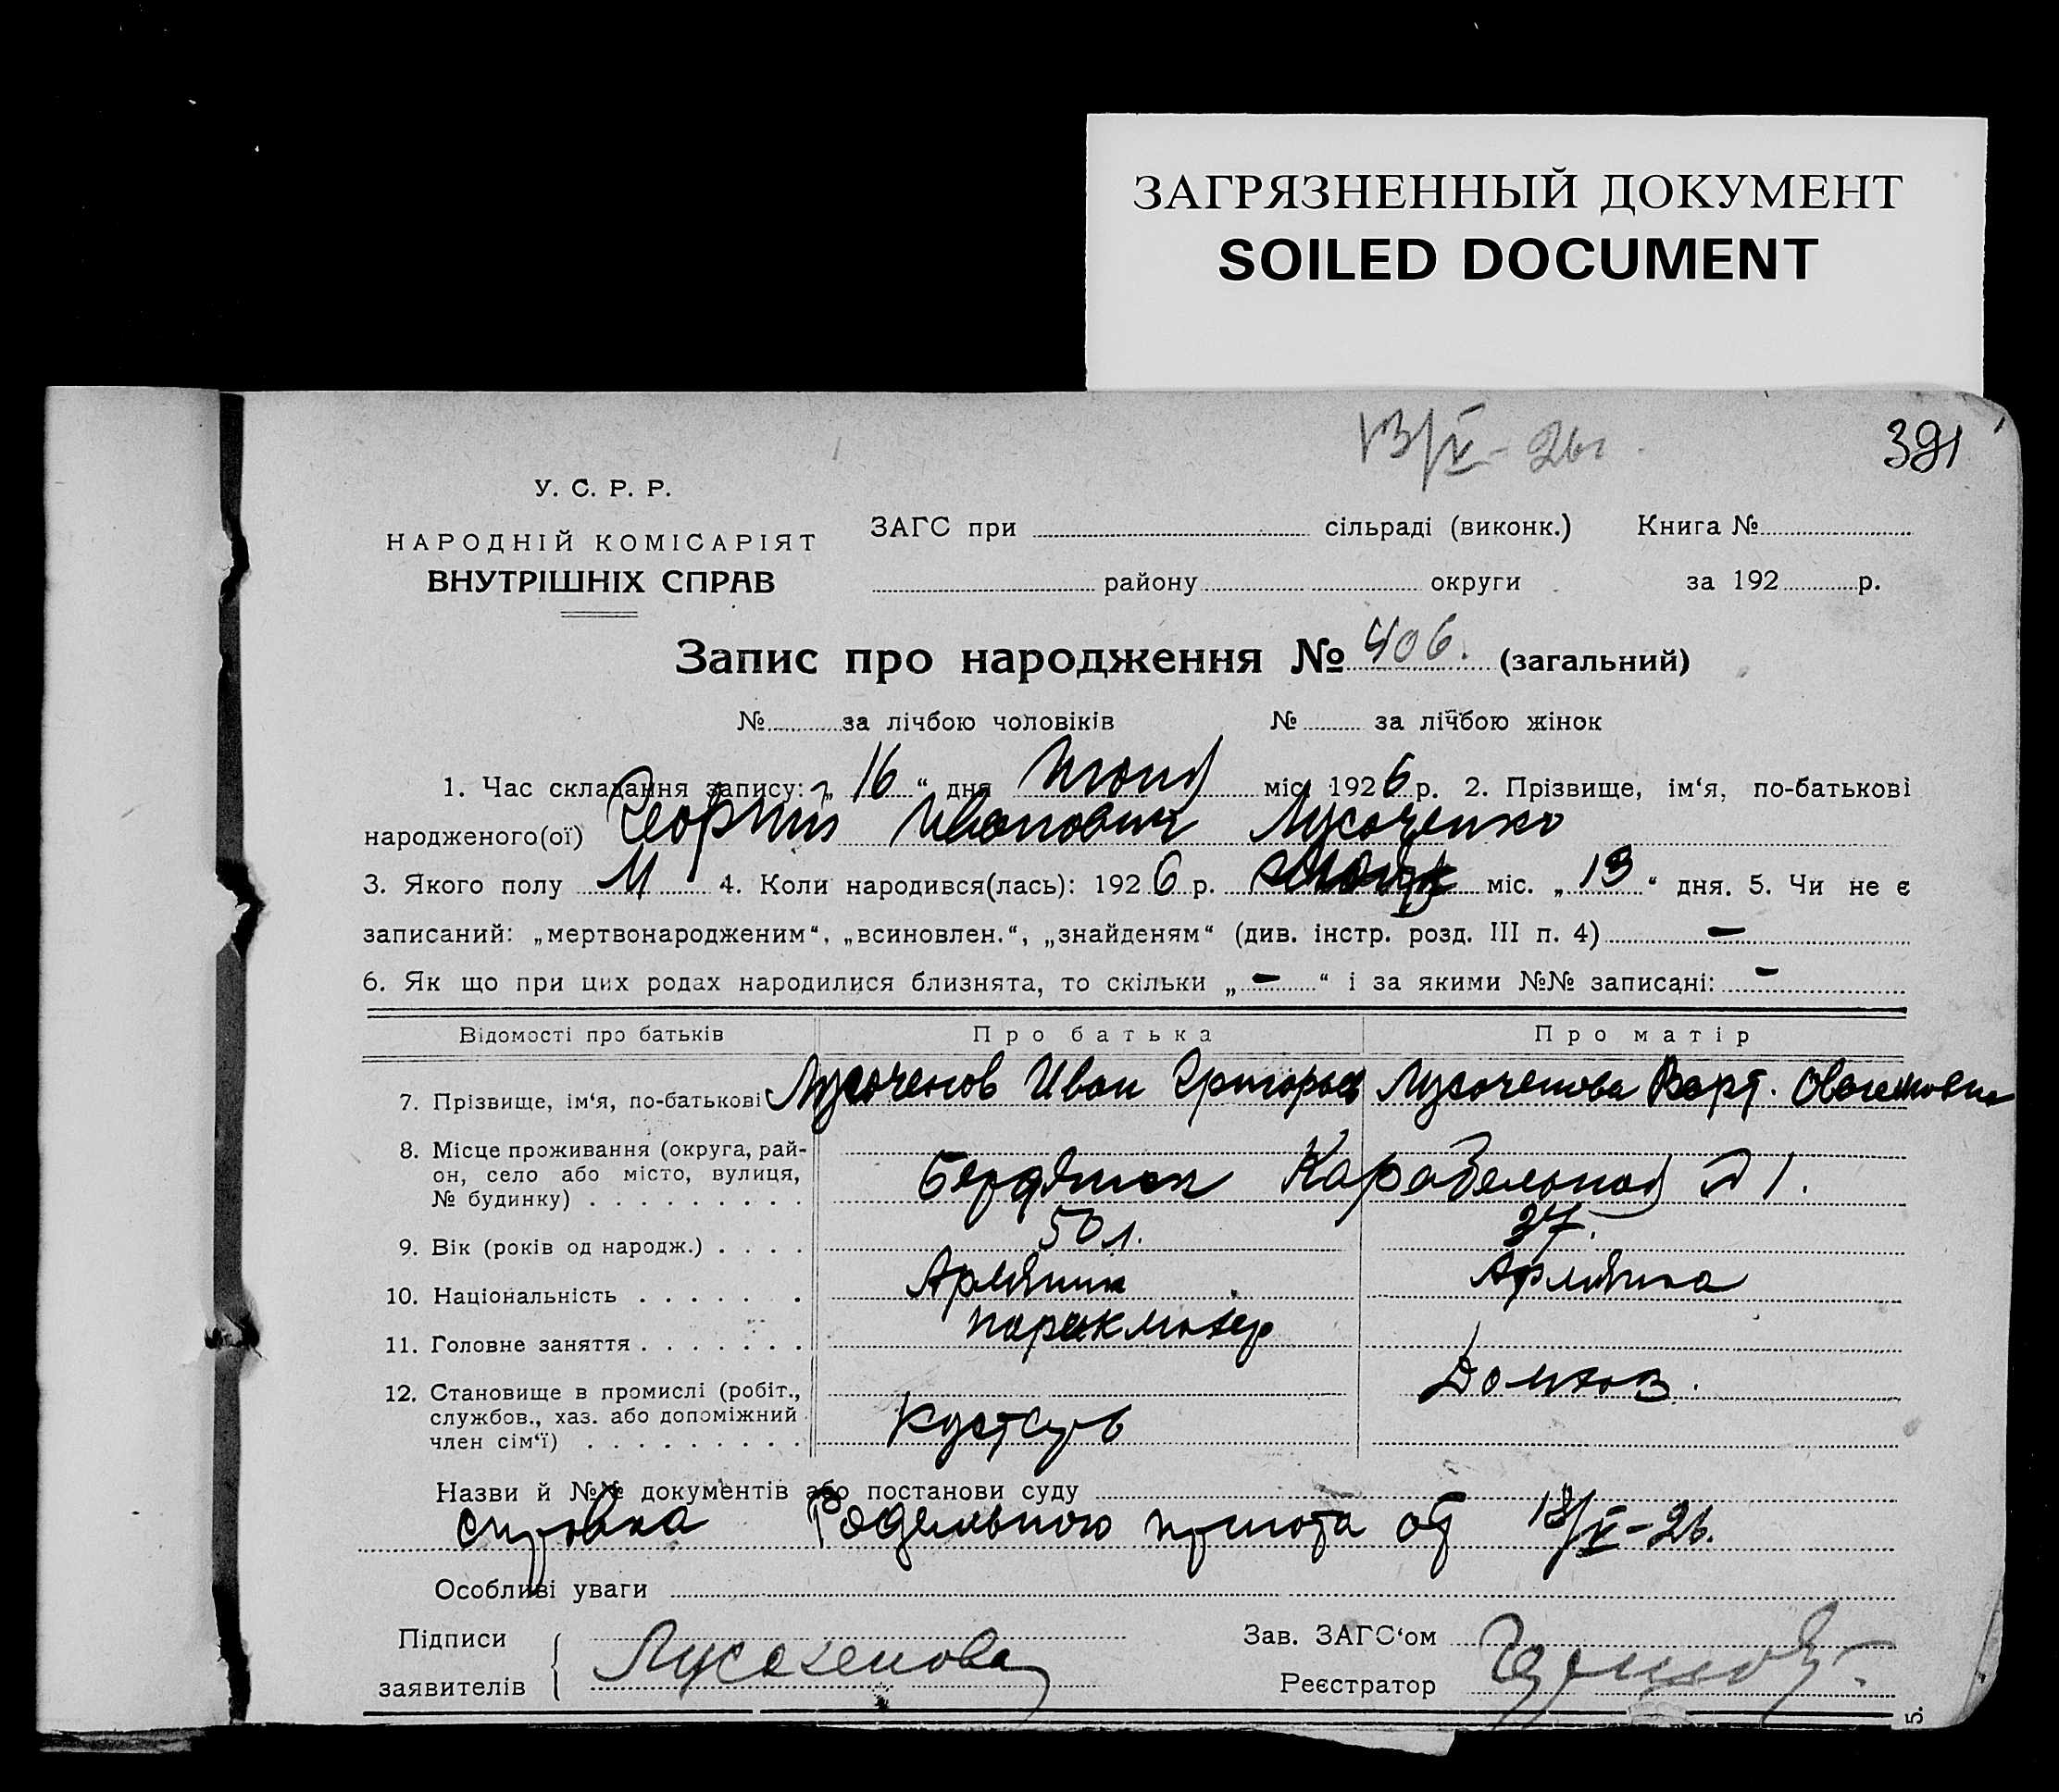 ЗАГРЯЗНЕННЫЙ ДОКУМЕНТ
SOILED DOCUMENT
13/V-26г.
391
У. С. Р. Р.
НАРОДНІЙ КОМІСАРІЯТ
ВНУТРІШНІХ СПРАВ
ЗАГС при сільраді (виконк.) Книга №
району округи за 192 р.
Запис про народження № 406. (загальний)
№ за лічбою чоловіків № за лічбою жінок
1. Час складання запису: „ 16 “ дня міс. 1926 р. 2. Прізвище, ім‘я, по-батькові
народженого(ої) Георгий Иванович Лусоченко
3. Якого полу М 4. Коли народився(лась): 1926 р. міс. „ 13 “ дня. 5. Чи не є
записаний: „мертвонародженим“, „всиновлен.“, „знайденям“ (див. інстр. розд. III п. 4) —
6. Як що при цих родах народилися близнята, то скільки „ — “ і за якими №№ записані: —
Відомості про батьків Про батька Про матір
7. Прізвище, ім‘я, по-батькові Лусоченов Иван Григорьев Лусоченова Варт.
8. Місце проживання (округа, рай-
он, село або місто, вулиця,
№ будинку) Бердянск Карабельная 1.
9. Вік (років од народж.) 50 л. 37.
10. Національність Армянин Армянка
11. Головне заняття парикмахер
12. Становище в промислі (робіт.,
службов., хаз. або допоміжний
член сім‘ї) Кустарь Домхоз.
Назви й №№ документів або постанови суду
справка Родильного приюта от /V-26.
Особливі уваги
Підписи
заявителів Лусегенова
Зав. ЗАГС‘ом
Реєстратор
5.